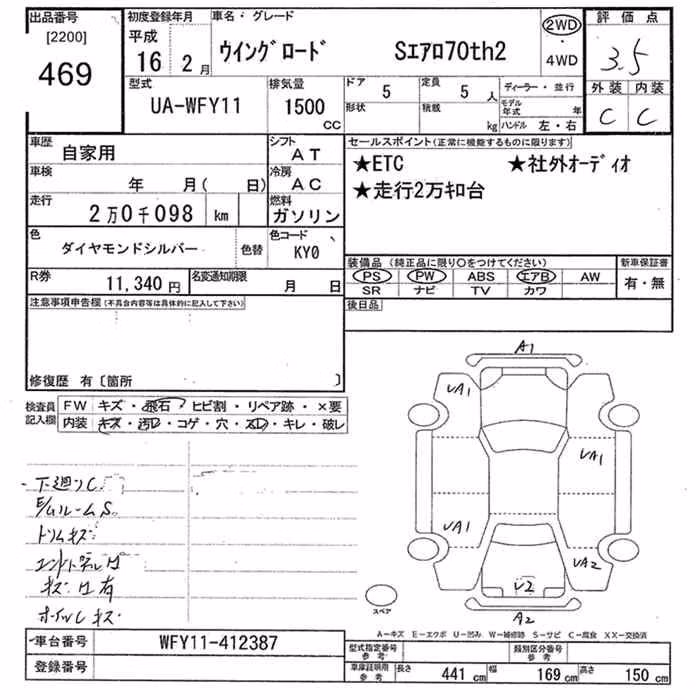 出品番号 初度登録年月 車名・グレード 2WD 評価点
[2200] 平成 ・
469 16 2月 ウイングロード Sエアロ70th2 4WD 3.5
型式 排気量 ドア 5 定員 5人 ディーラー・並行 外装 内装
UA-WFY11 1500 CC 形状 積載 kg モデル年式 年 C C
ハンドル 左・右
車歴 自家用 シフト AT セールスポイント(正常に機能するものに限ります)
車検 年 月( 日) 冷房 AC ★ETC ★社外オーディオ
走行 2万0千098 km 燃料 ガソリン ★走行2万キロ台
色 ダイヤモンドシルバー 色替 色コード KY0
装備品(純正品に限り○をつけてください) 新車保証書
R券 11,340円 名変通知期限 月 日 PS PW ABS エアB AW 有・無
SR ナビ TV カワ
注意事項申告欄(不具合内容等は具体的に記入して下さい) 後日品
修復歴 有〔箇所 〕
検査員記入欄 FW キズ・飛石・ヒビ割・リペア跡・×要
内装 キズ・汚レ・コゲ・穴・スレ・キレ・破レ
A1
UA1
UA1
下廻りC
UA1
E/ルームS
トリムキズ
UA2
キズ 有
U2
ホイルキズ
スペア
A2
A-キズ E-エクボ U-凹み W-補修跡 S-サビ C-腐食 XX-交換済
車台番号 WFY11-412387 型式指定番号 参考 類別区分番号 参考
登録番号 車庫証明用 参考 長さ 441cm 幅 169cm 高さ 150cm